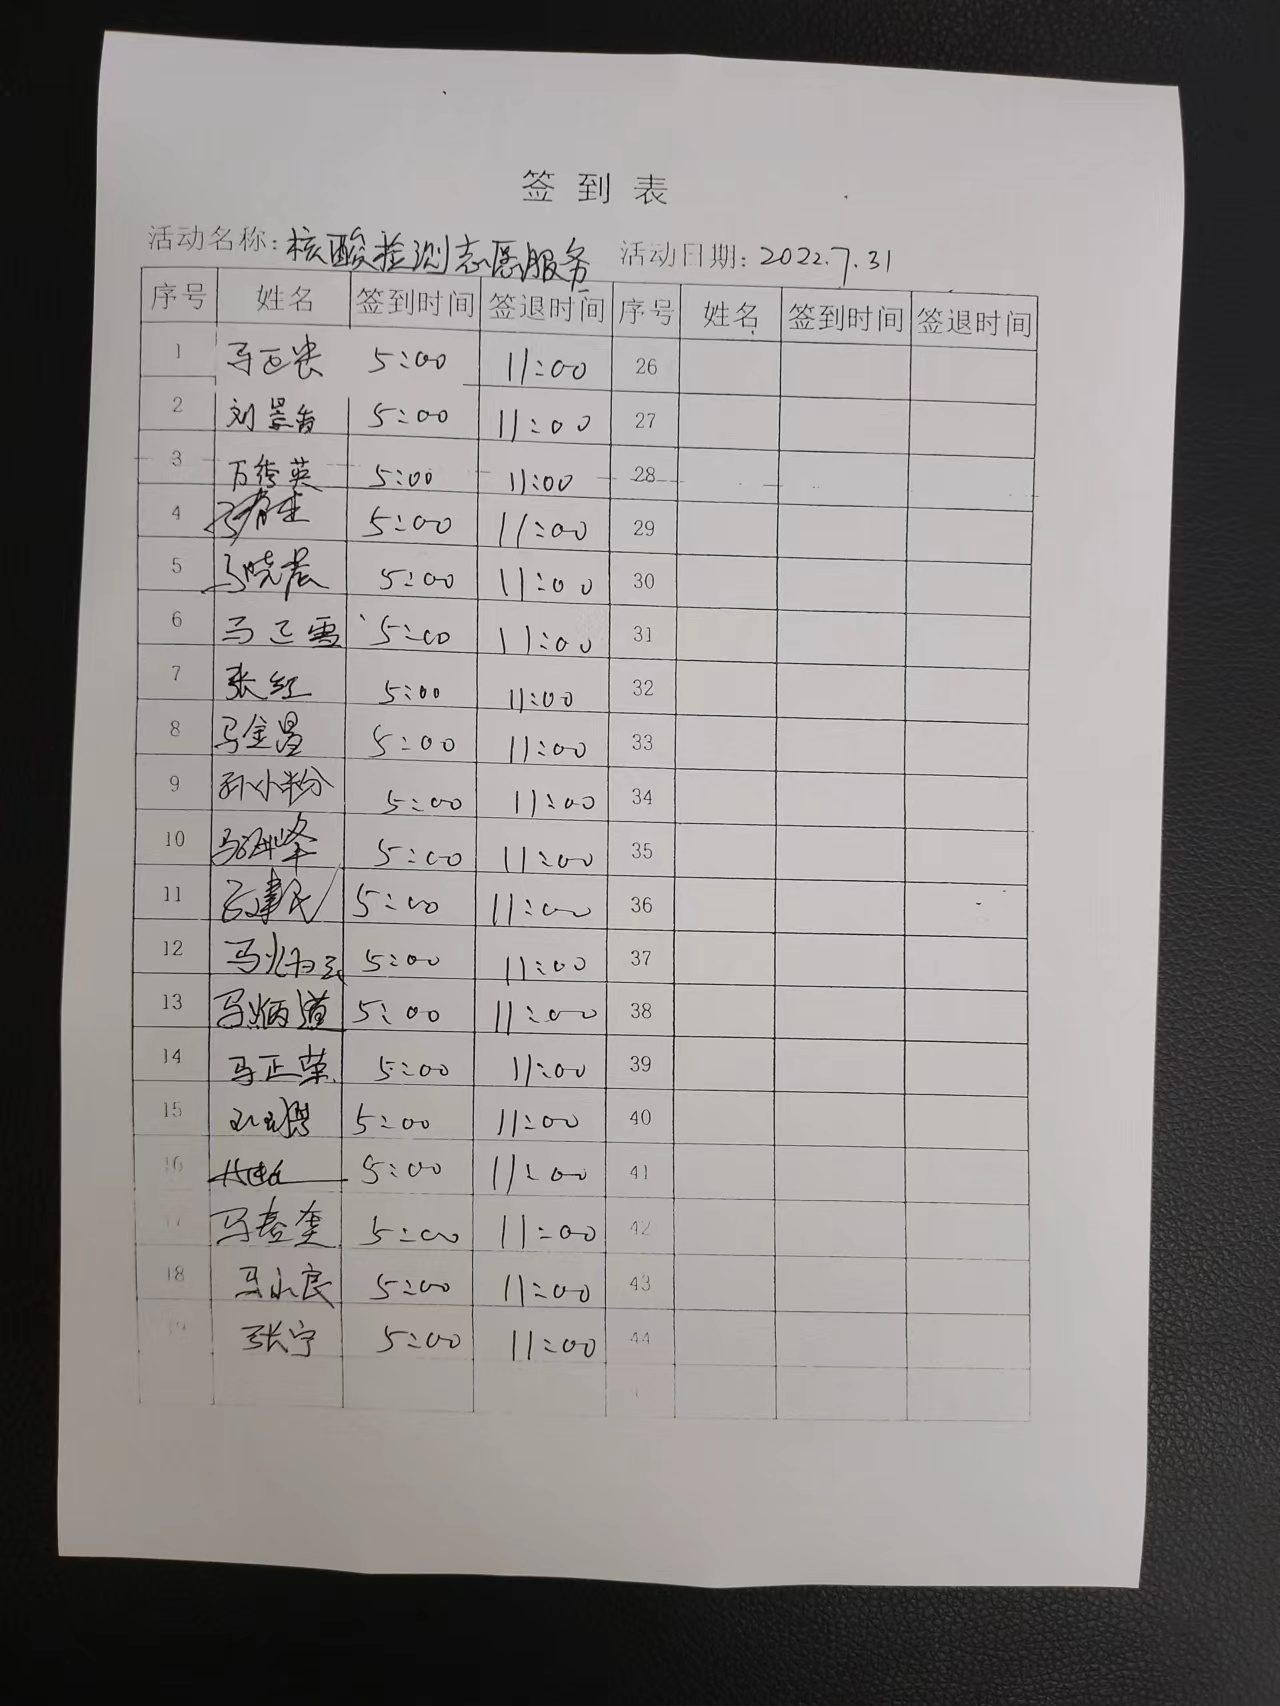 签到表
活动名称：核酸检测志愿服务 活动日期：2022.7.31
序号 姓名 签到时间 签退时间 序号 姓名 签到时间 签退时间
1 5:00 11:00 26
2 刘景香 5:00 11:00 27
3 万秀英 5:00 11:00 28
4 5:00 11:00 29
5 马晓晨 5:00 11:00 30
6 马正雪 5:00 11:00 31
7 张红 5:00 11:00 32
8 马金昌 5:00 11:00 33
9 孙小粉 5:00 11:00 34
10 马海峰 5:00 11:00 35
11 5:00 11:00 36
12 5:00 11:00 37
13 马炳道 5:00 11:00 38
14 马正荣 5:00 11:00 39
15 5:00 11:00 40
16 5:00 11:00 41
17 5:00 11:00 42
18 马永良 5:00 11:00 43
19 张宁 5:00 11:00 44